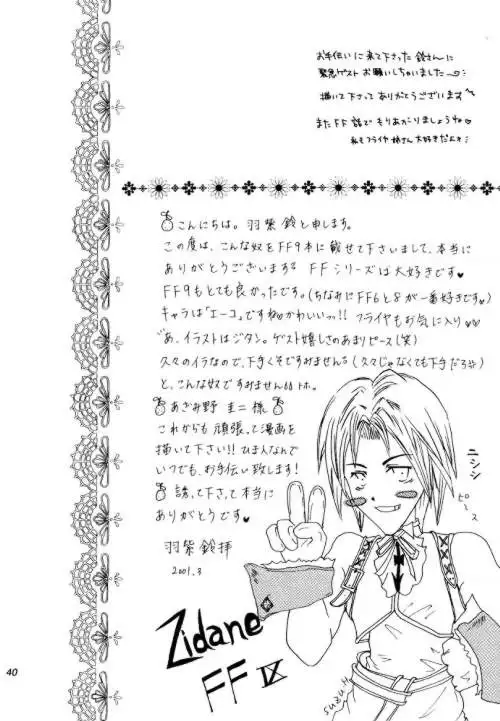 お手伝いに来て下さった 鈴さんに
緊急ゲスト お願いしちゃいました
描いて下さって ありがとうございます
また FF 話で もりあがりましょうね♡
私も フライヤ 姉さん 大好きだよ
こんにちは。羽柴 鈴と申します。
この度は、こんな奴をFF9本に載せて下さいまして、本当に
ありがとうございます FFシリーズは大好きです♥
FF9もとても良かったです。(ちなみにFF6と8が一番好きです♥)
キャラは「エーコ」ですね かわいいっ!! フライヤもお気に入り♥
あ、イラストはジタン。ゲスト嬉しさのあまりピース(笑)
久々のイラなので、下手くそですみません (久々じゃなくても下手だろ)
と、こんな奴ですみません トホ。
あぎみ野 圭二 様
これからも 頑張って漫画を
描いて下さい!! ひま人なんで
いつでも、お手伝い致します!
誘って下さって本当に
ありがとうです♥
羽柴 鈴 拝
2001.3
ニシシ
ピース
Zidane
FF IX
suzu
40